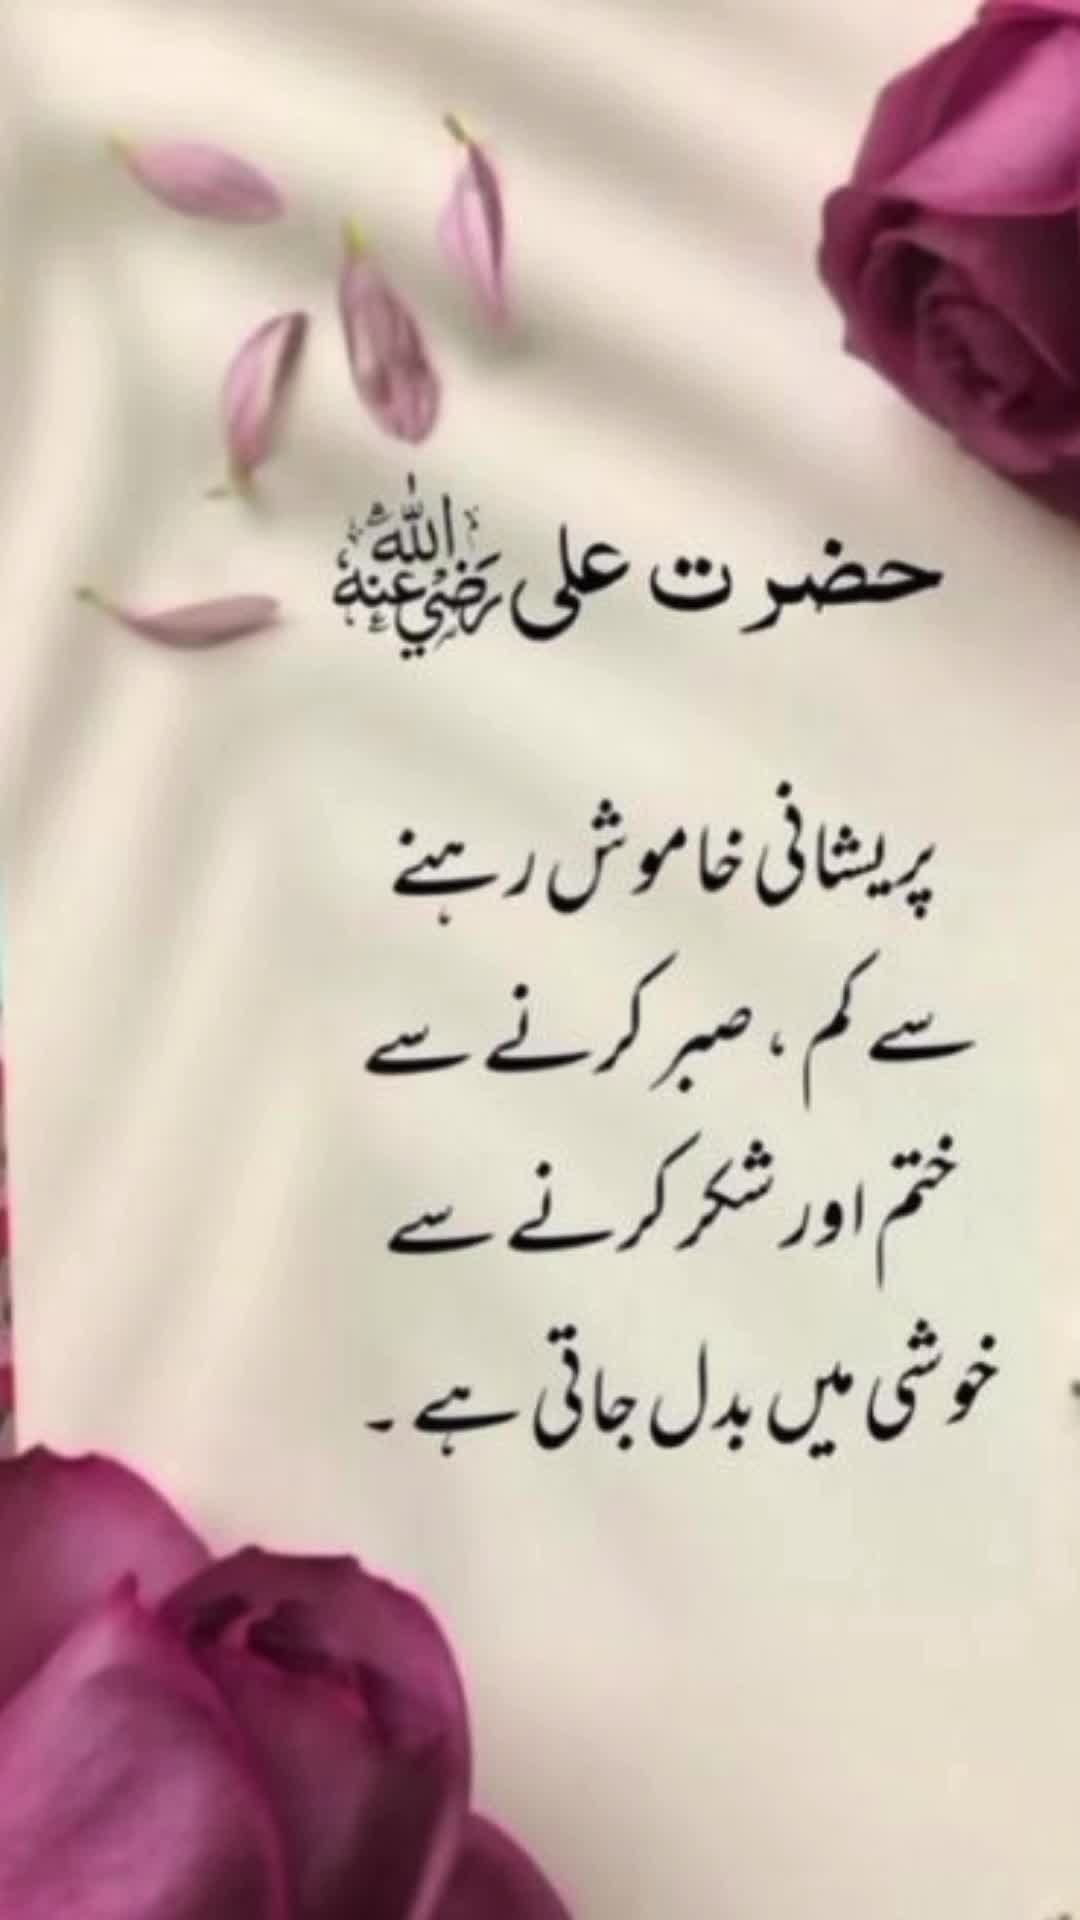 حضرت علی رضي الله عنه
پریشانی خاموش رہنے
سے کم ، صبر کرنے سے
ختم اور شکر کرنے سے
خوشی میں بدل جاتی ہے ۔